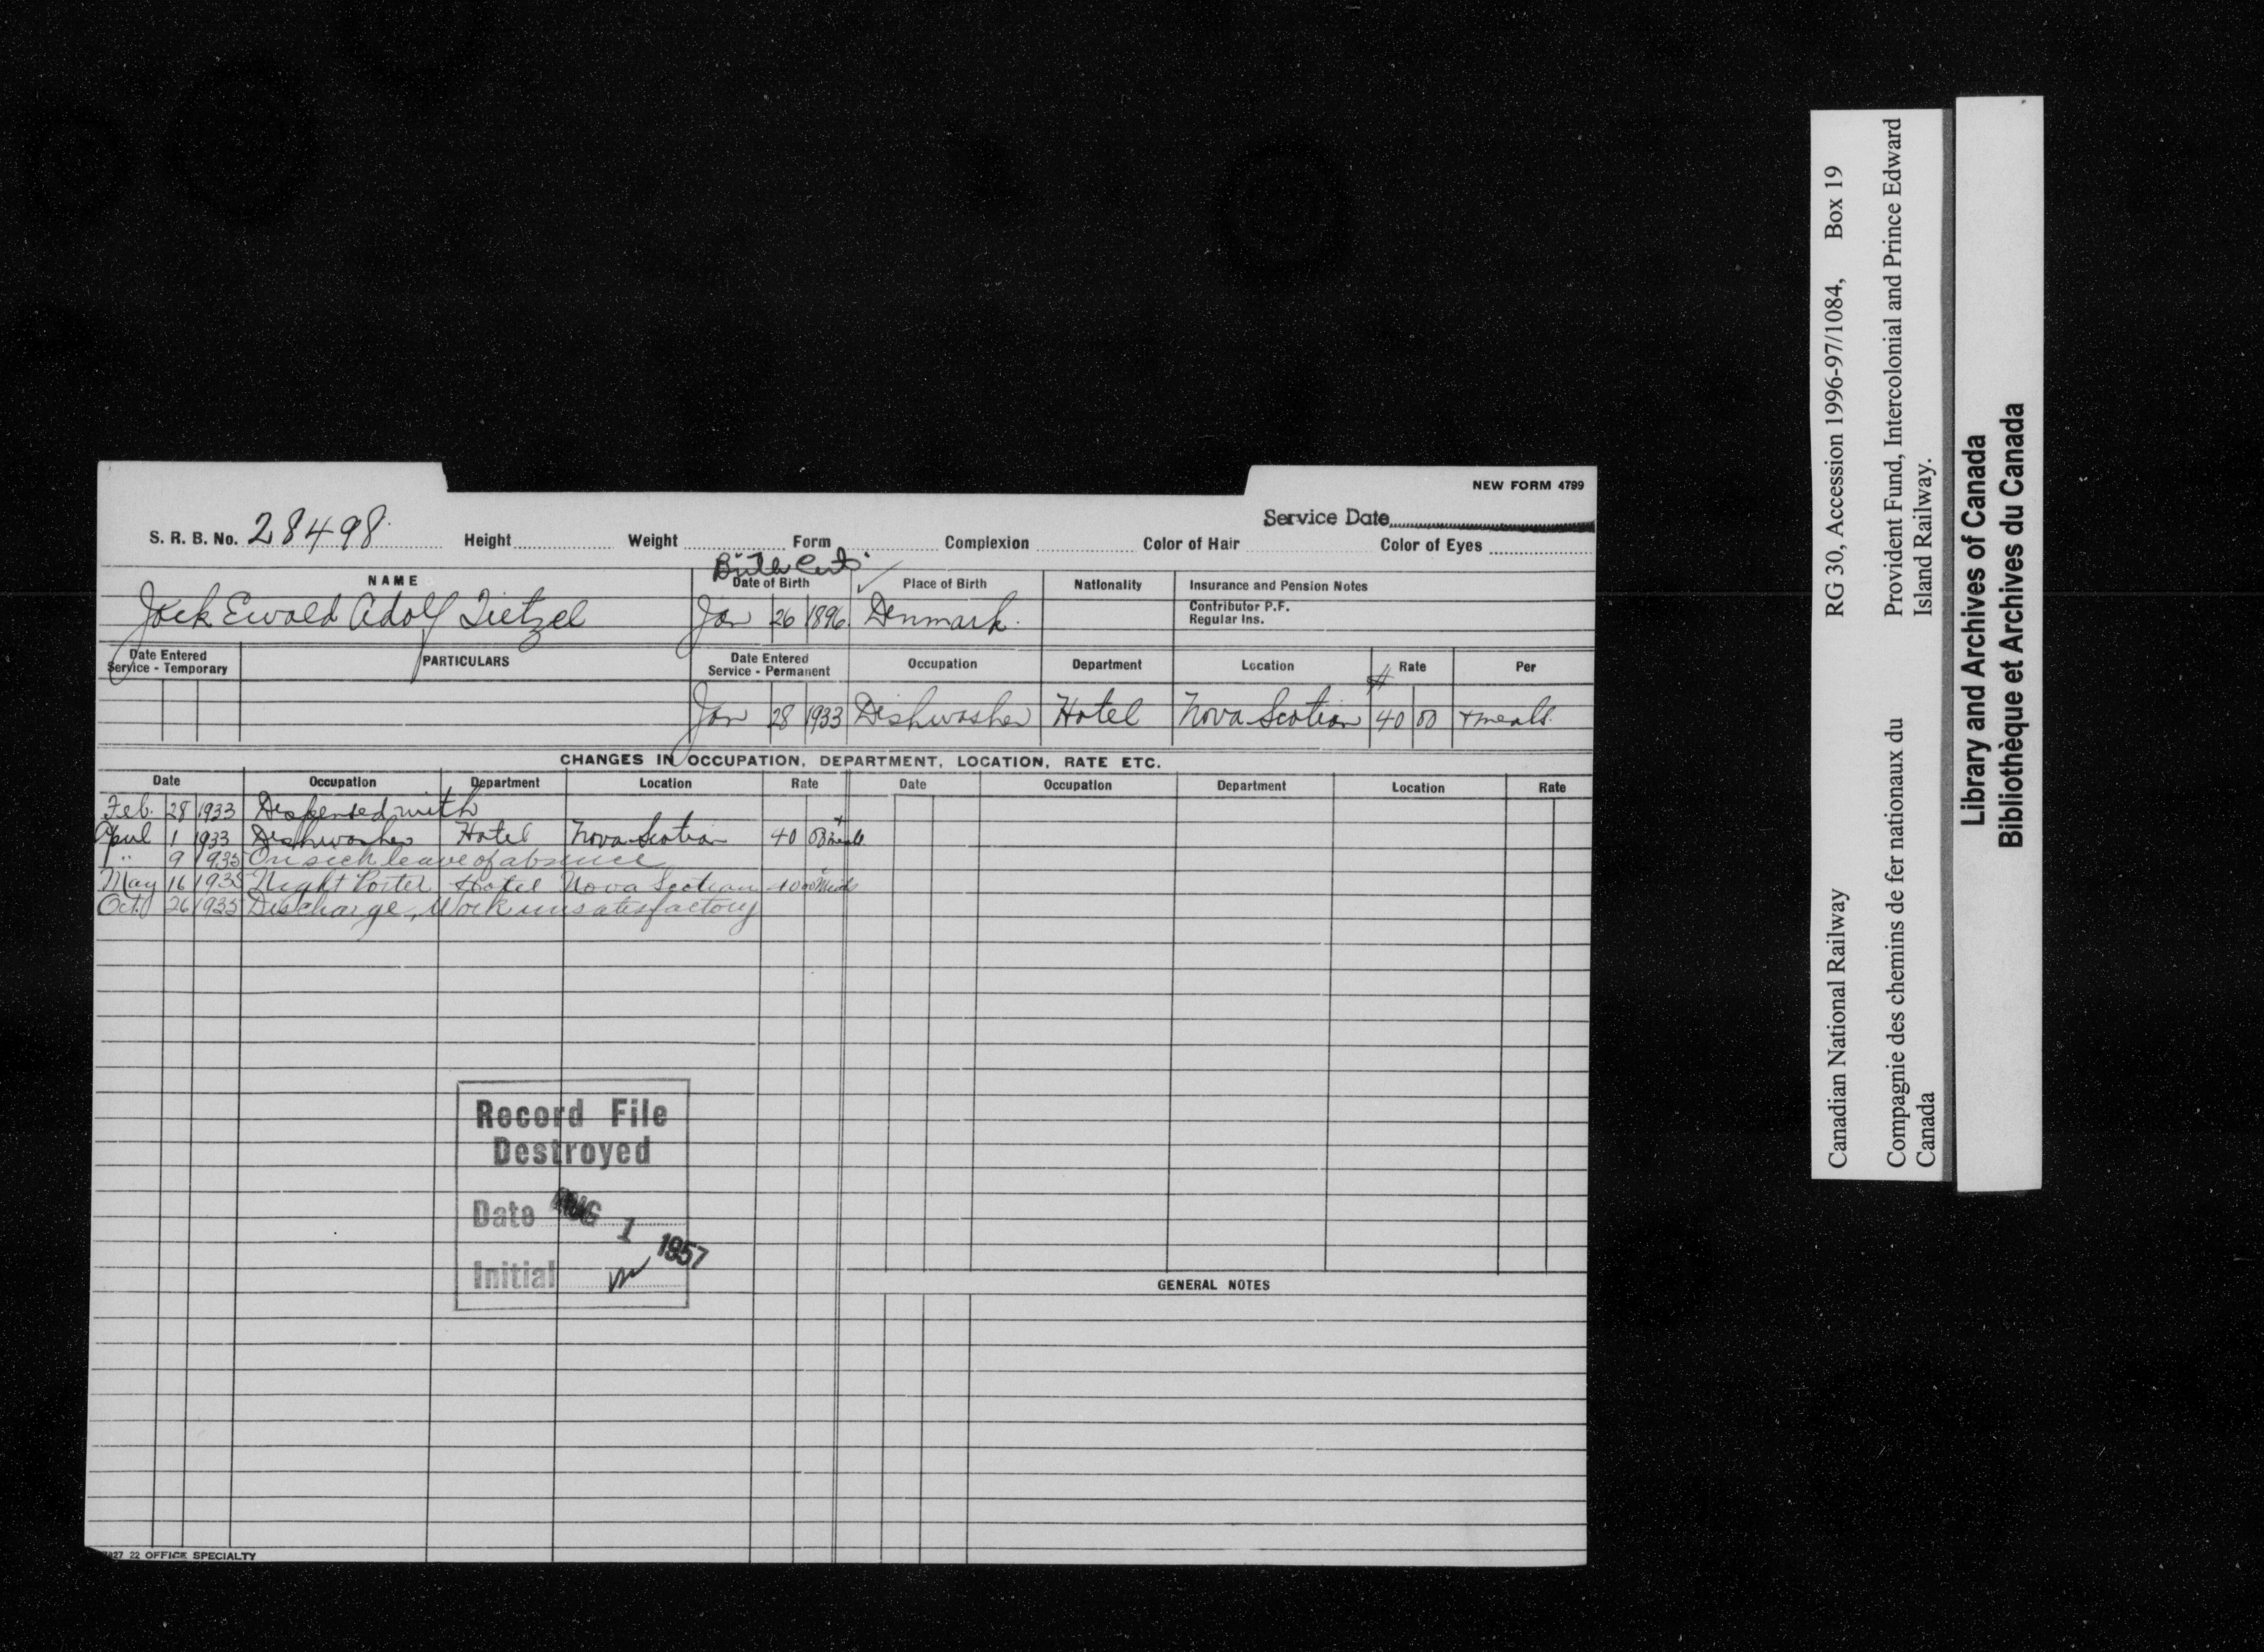 NEW FORM 4799
Service Date
S. R. B. No. 28498 Height Weight Form Complexion Color of Hair Color of Eyes
Birth Cert.
NAME Date of Birth Place of Birth Nationality Insurance and Pension Notes
Contributor P.F.
Regular Ins.
Jack Ewald Adolf Tietzel Jan 26 1896 Denmark.
Date Entered Service - Temporary PARTICULARS Date Entered Service - Permanent Occupation Department Location Rate Per
Jan 28 1933 Dishwasher Hotel Nova Scotian 40 00 + meals.
CHANGES IN OCCUPATION, DEPARTMENT, LOCATION, RATE ETC.
Date Occupation Department Location Rate Date Occupation Department Location Rate
Feb. 28 1933 Dispensed with
April 1 1933 Dishwasher Hotel Nova Scotian 40 00 + meals
" 9 1935 On sick leave of absence
May 16 1935 Night Porter Hotel Nova Scotian 40 00 + Meals
Oct. 26 1935 Discharge, Work unsatisfactory
Record File
Destroyed
Date AUG 1 1957
Initial
GENERAL NOTES
22 OFFICE SPECIALTY
Canadian National Railway RG 30, Accession 1996-97/1084, Box 19
Compagnie des chemins de fer nationaux du Provident Fund, Intercolonial and Prince Edward
Canada Island Railway.
Library and Archives of Canada
Bibliothèque et Archives du Canada